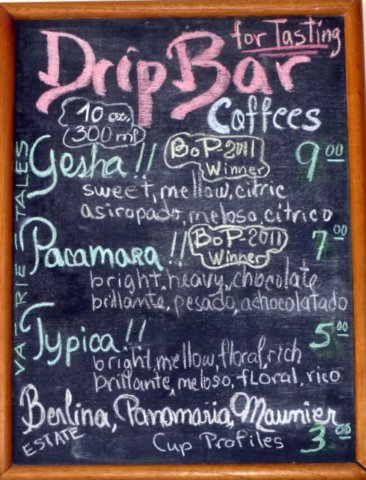 for Tasting
Drip Bar
Coffees
10 ozs.
300 ml
Gesha!! BoP-2011 Winner 9.00
sweet, mellow, citric
asiropado, meloso, cítrico
Pacamara!! BoP-2011 Winner 7.00
bright, heavy, chocolate
brillante, pesado, achocolatado
Typica!! 5.00
bright, mellow, floral, rich
brillante, meloso, floral, rico
VARIETALES
Berlina, Panamaria, Maunier
ESTATE Cup Profiles 3.00